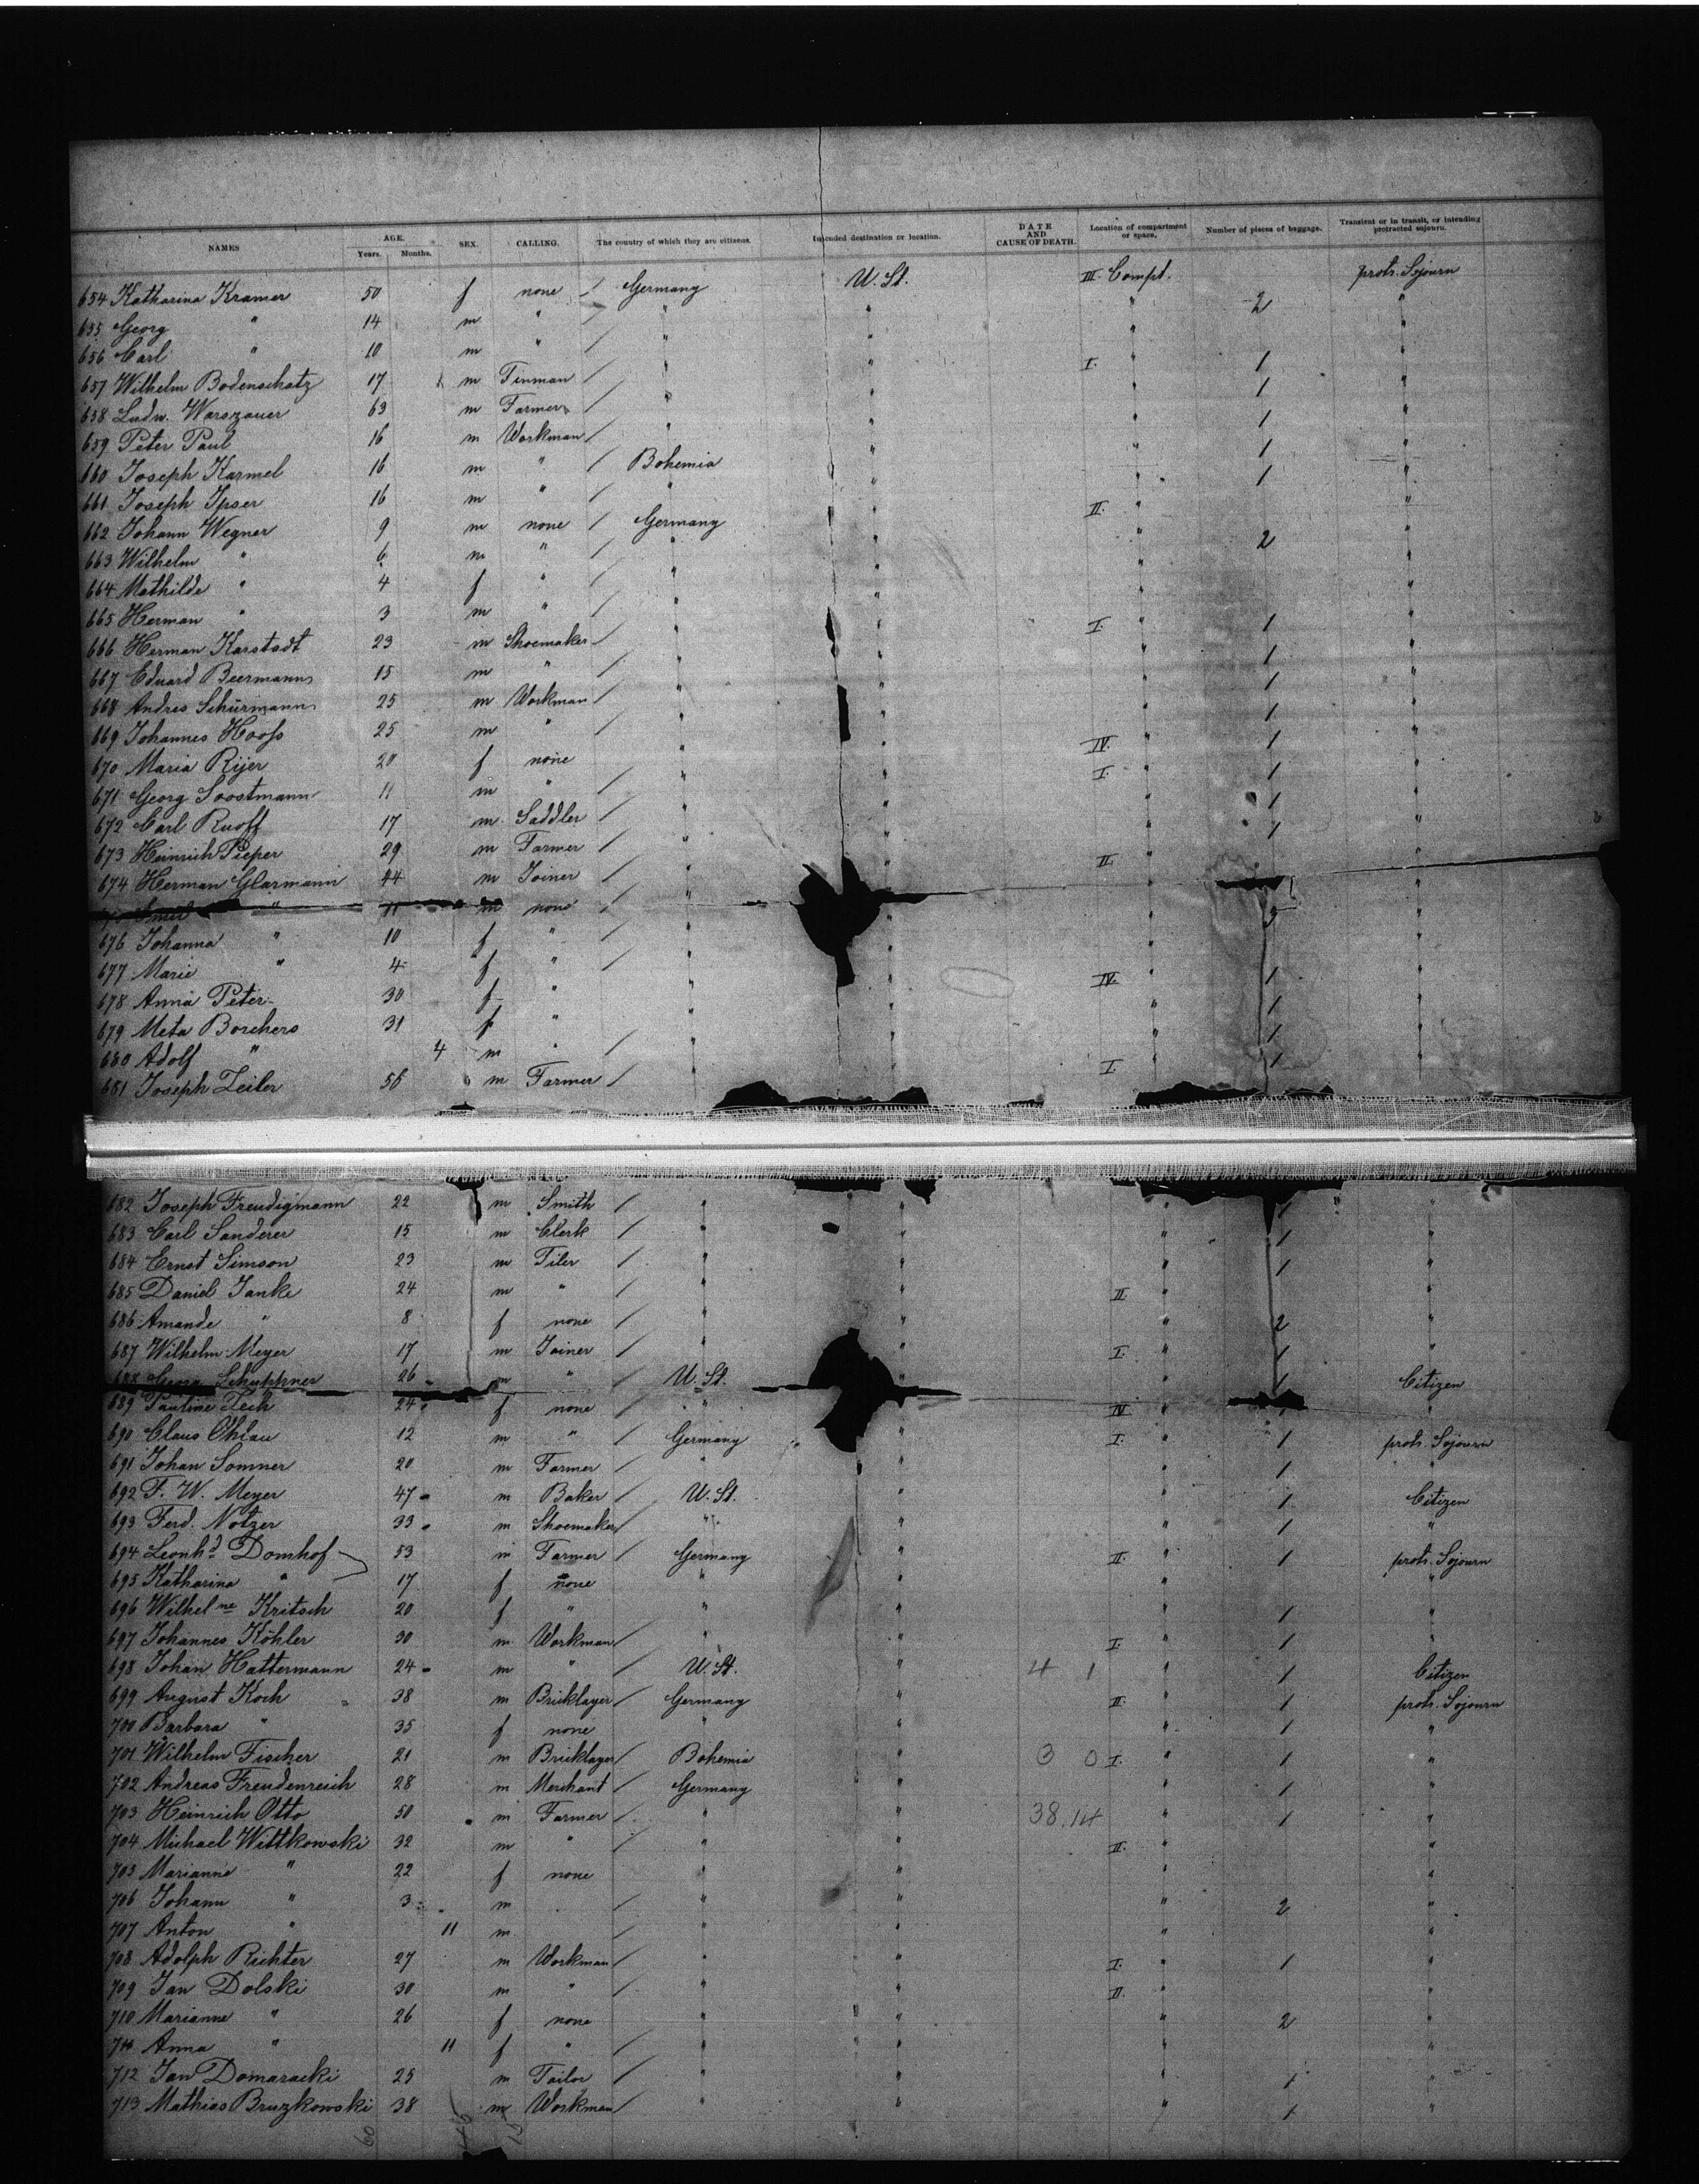 NAMES AGE. Years. Months. SEX. CALLING. The country of which they are citizens. Intended destination or location. DATE AND CAUSE OF DEATH. Location of compartment or space. Number of pieces of baggage. Transient or in transit, or intending protracted sojourn.
654 Katharina Kramer 50 f none / Germany U. St. III. Compt. protr. Sojourn
655 Georg " 14 m " / " " " 2 "
656 Carl " 10 m " / " " " "
657 Wilhelm Bodenschatz 17 m Tinman / " " I. " 1 "
658 Ludw. Warszauer 63 m Farmer / " " " 1 "
659 Peter Paul 16 m Workman / " " " 1 "
660 Joseph Karmel 16 m " / Bohemia " " 1 "
661 Joseph Ipser 16 m " / " " " 1 "
662 Johann Wegner 9 m none / Germany " II. " "
663 Wilhelm " 6 m " / " " " 2 "
664 Mathilde " 4 f " / " " " "
665 Herman " 3 m " / " " " "
666 Herman Karstadt 23 m Shoemaker / " " I. " 1 "
667 Eduard Beermann 15 m " / " " " 1 "
668 Andres Schürmann 25 m Workman / " " " 1 "
669 Johannes Hoofs 25 m " / " " " 1 "
670 Maria Rijer 20 f none " " IV. " 1 "
671 Georg Soostmann 11 m " / " " I. " 1 "
672 Carl Ruoff 17 m Saddler / " " " 1 "
673 Heinrich Pieper 29 m Farmer / " " " 1 "
674 Herman Glarmann 44 m Joiner / " " II. " "
" 11 m none / " " " 3 "
676 Johanna " 10 f " / " " " "
677 Marie " 4 f " / " " " "
678 Anna Peter 30 f " " " IV. " 1 "
679 Meta Borchers 31 f " " " " 1 "
680 Adolf " 4 m " / " " " 1 "
681 Joseph Zeiler 56 m Farmer / " " I. " 1 "
682 Joseph Freudigmann 22 m Smith / " " " 1 "
683 Carl Sanderer 15 m Clerk / " " " 1 "
684 Ernst Simson 23 m Tiler / " " " 1 "
685 Daniel Janke 24 m " / " " II. " "
686 Amande " 8 f none / " " " 2 "
687 Wilhelm Meyer 17 m Joiner / " " I. " 1 "
688 Georg Schuppner 26 m " / U. St. " " 1 Citizen
689 Pauline Tech 24 f none / " " IV " 1 "
690 Claus Ohlau 12 m " / Germany " I. " 1 protr. Sojourn
691 Johan Somner 20 m Farmer / " " " 1 "
692 F. W. Meyer 47 m Baker / U. St. " " 1 Citizen
693 Ferd. Notzer 33 m Shoemaker / " " " 1 "
694 Leonhd. Domhof 53 m Farmer / Germany " II. " 1 protr. Sojourn
695 Katharina " 17 f none " " " "
696 Wilhelne Kritsch 20 f " " " " 1 "
697 Johannes Köhler 30 m Workman / " " I. " 1 "
698 Johan Hattermann 24 m " / U. St. " 4 1 " 1 Citizen
699 August Koch 38 m Bricklayer / Germany " II. " 1 protr. Sojourn
700 Barbara " 35 f none " " " 1 "
701 Wilhelm Fischer 21 m Bricklayer / Bohemia " 3 0 I. " 1 "
702 Andreas Freudenreich 28 m Merchant / Germany " " 1 "
703 Heinrich Otto 50 m Farmer / " " 38.14 " 1 "
704 Michael Wittkowski 32 m " / " " II. " "
705 Marianne " 22 f none " " " "
706 Johann " 3 m / " " " 2 "
707 Anton " 11 m / " " " "
708 Adolph Richter 27 m Workman / " " I. " 1 "
709 Jan Dolski 30 m " / " " II. " "
710 Marianne " 26 f none " " " 2 "
711 Anna " 11 f " / " " " "
712 Jan Domaracki 25 m Tailor / " " " 1 "
713 Mathias Bruzkowski 38 m Workman / " " " 1 "